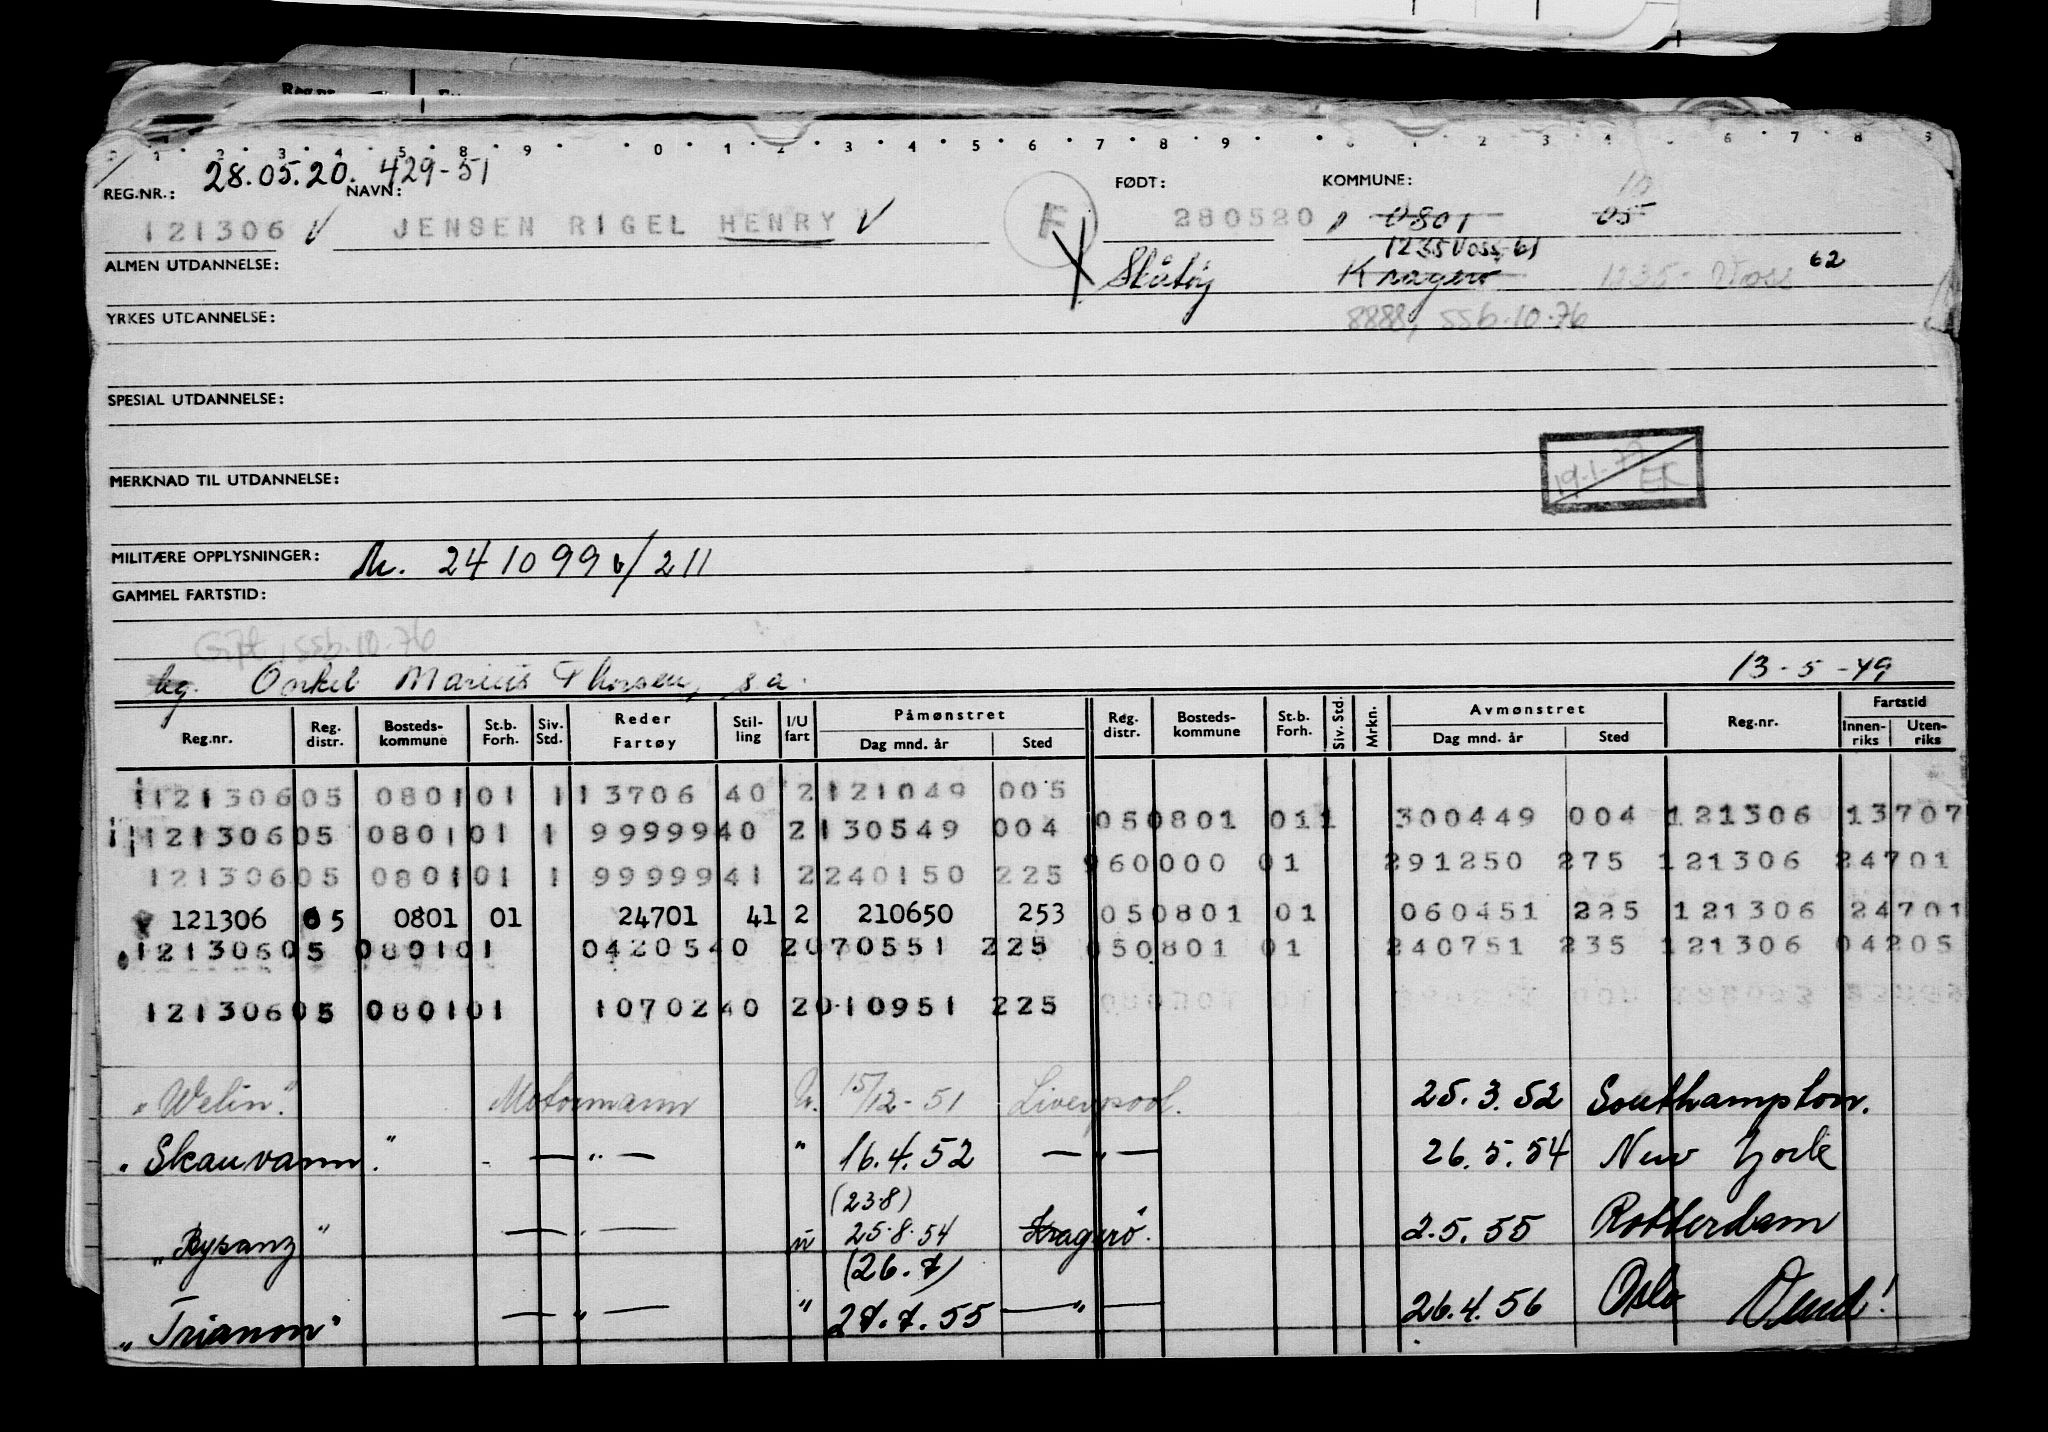 28.05.20. 429-51
REG.NR.: NAVN: FØDT: KOMMUNE: 10
121306 V JENSEN RIGEL HENRY V F 280520 0801 05
ALMEN UTDANNELSE: Skåtøy 1235 Voss-61 Kragerø 1235- Voss 62
YRKES UTDANNELSE: 8888, SSb.10.76
SPESIAL UTDANNELSE:
19-1-77 EK
MERKNAD TIL UTDANNELSE:
MILITÆRE OPPLYSNINGER: Nr. 241099 b/211
GAMMEL FARTSTID:
Gift, SSb.10.76
Onkel Marius Thorsen, s.a. 13-5-49
Reg.nr. Reg. distr. Bosteds-kommune St.b. Forh. Siv. Std. Reder Fartøy Stil-ling I/U fart Påmønstret Dag mnd. år Sted Reg. distr. Bosteds-kommune St.b. Forh. Siv. Std. Mrkn. Avmønstret Dag mnd. år Sted Reg.nr. Fartstid Innen-riks Uten-riks
121306 05 0801 01 1 13706 40 2 121049 005
050801 01 1 300449 004 121306 13707
121306 05 0801 01 1 99999 40 2 130549 004
960000 01 291250 275 121306 24701
121306 05 0801 01 1 99999 41 2 240150 225
121306 05 0801 01 24701 41 2 210650 253 050801 01 060451 225 121306 24701
121306 05 0801 01 04205 40 2 070551 225 050801 01 240751 235 121306 04205
121306 05 0801 01 10702 40 2 010951 225
"Welin". Motormann U. 15/12-51 Liverpool. 25.3.52 Southampton.
"Skauvann". — " — " 16.4.52 — " — 26.5.54 New York
(23.8)
"Bysanz" — " — u 25.8.54 Kragerø. 2.5.55 Rotterdam
(26.7)
"Trianon" — " — " 27.7.55 — " — 26.4.56 Oslo